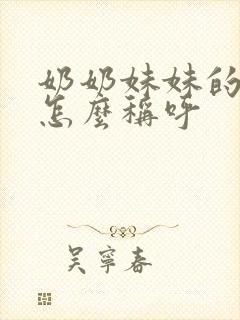 奶奶妹妹的
怎麼稱呼
吳寧春